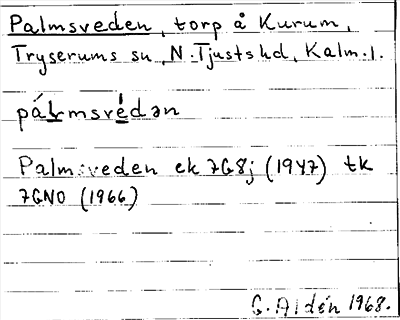 Palmsveden, torp å Kurum,
Tryserums sn, N. Tjusts hd, Kalm. l.
pálmsvédən
Palmsveden ek 7G8j (1947) tk
7GNO (1966)
G. Aldén 1968.